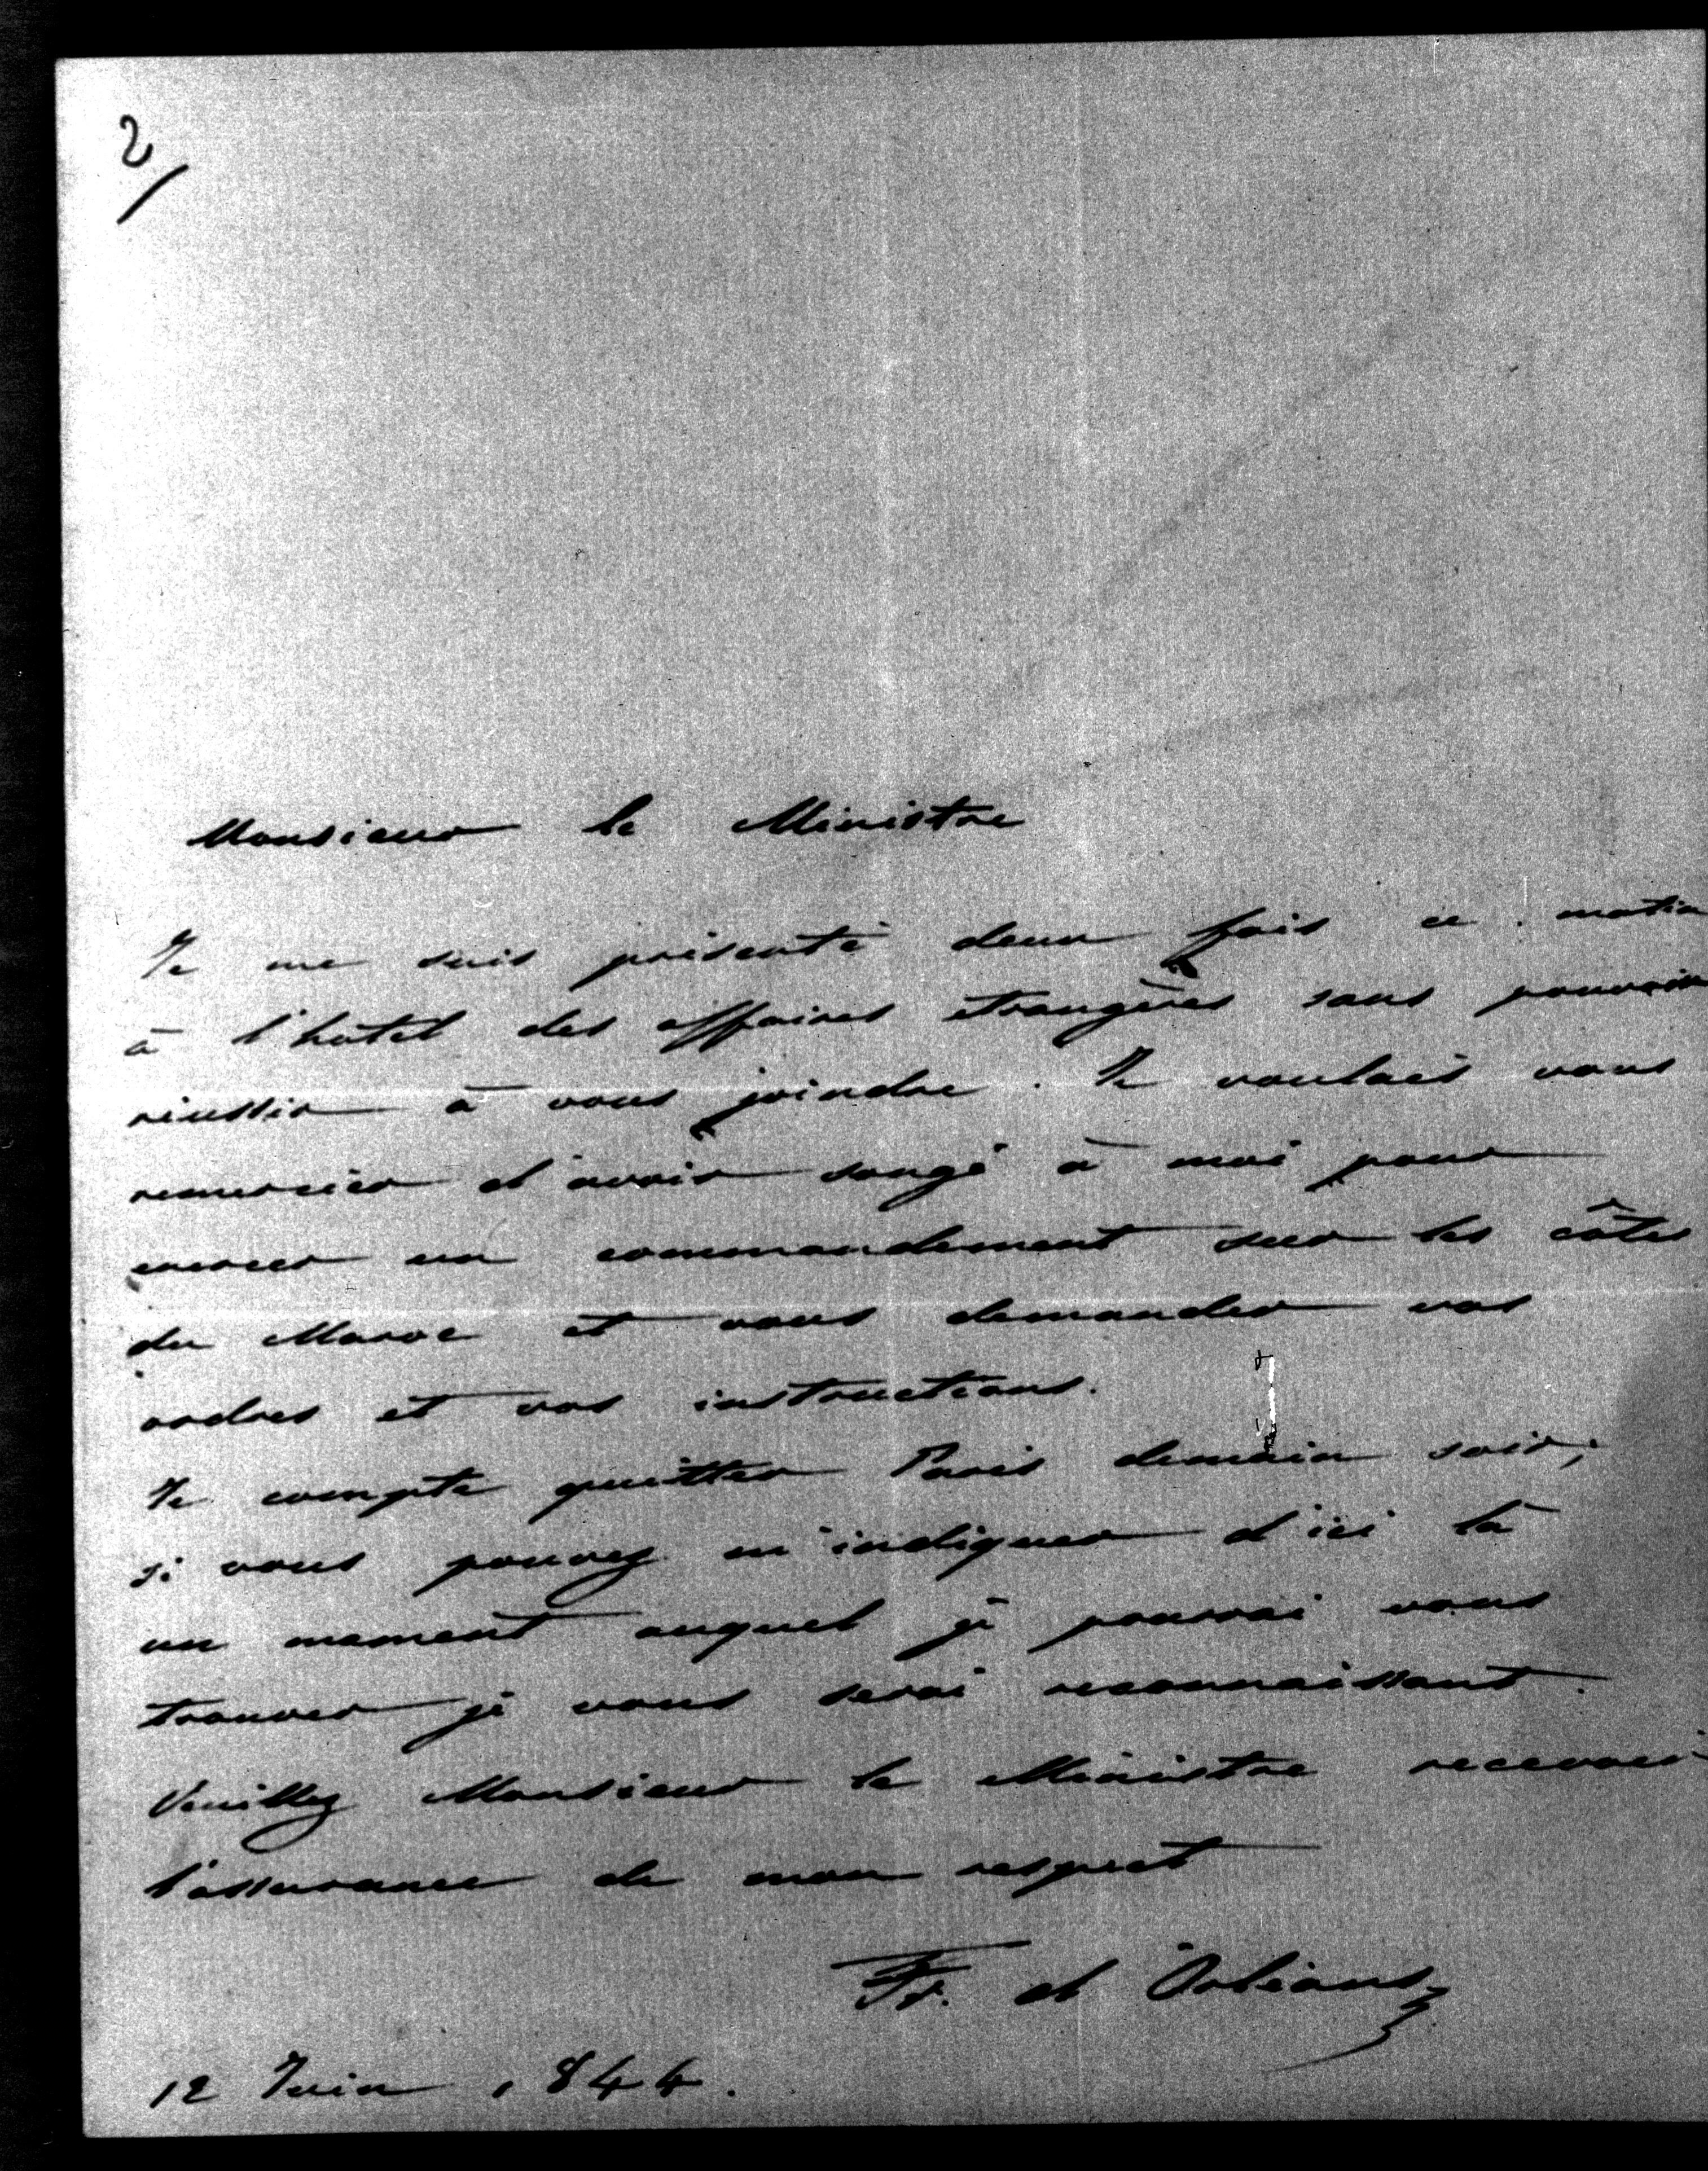 2/
Monsieur le Ministre
Je me suis présenté deux fois ce matin
à l'hotel des affaires etrangères sans pouvoir
réussir à vous joindre. Je voulais vous
remercier d'avoir songé à moi pour
exercer un commandement sur les côtes
du Maroc et vous demander vos
ordres et vos instructions.
Je compte quitter Paris demain soir,
si vous pouvez m'indiquer d'ici là
un moment auquel je pourrai vous
trouver je vous serai reconnaissant.
Veuillez Monsieur le Ministre recevoir
l'assurance de mon respect
Fr. d'Orléans
12 Juin 1844.